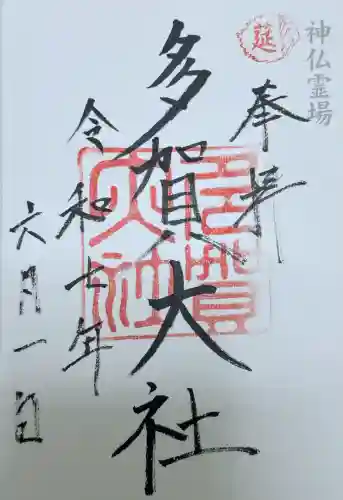 神仏霊場
莚
奉拝
多賀大社
令和七年
六月一日